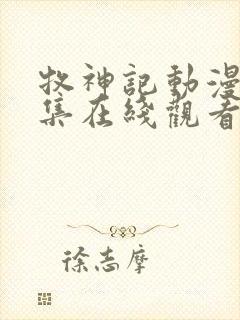 牧神記動漫
集在綫觀看
徐志摩